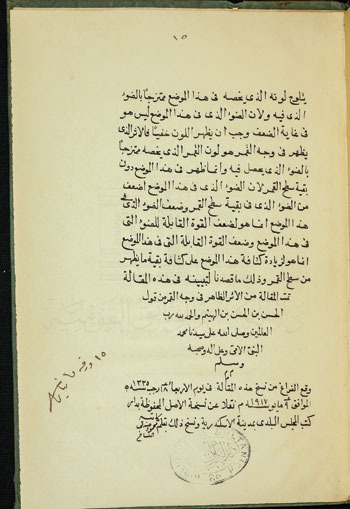 ١٥
يتلوح لونه الذى يخصه فى هذا الموضع ممتزجا بالضوء
الذى فيه ولان الضوء الذى فى هذا الموضع ليس هو
فى غاية الضعف وجب ان يظهر اللون خفيا فالاثر الذى
يظهر فى وجه القمر هو لون القمر الذى يخصه ممتزجا
بالضوء الذى يحصل فيه وانما ظهر فى هذا الموضع دون
بقية سطح القمر لان الضوء الذى فى هذا الموضع اضعف
من الضوء الذى فى بقية سطح القمر وضعف الضوء الذى فى
هذا الموضع انما هو لضعف القوة القابلة للضوء التى
فى هذا الموضع وضعف القوة القابلة التى فى هذا الموضع
انما هو لزيادة كثافة هذا الموضع على كثافة بقية ما يظهر
من سطح القمر وذلك ما قصدنا لتبيينه فى هذه المقالة
تمت المقالة من الاثر الظاهر فى وجه القمر من قول
الحسن بن الحسن بن الهيثم والحمد لله رب
العالمين وصلى الله على سيدنا محمد
النبى الامى وعلى اله وصحبه
وسلم
وقع الفراغ من نسخ هذه المقالة فى يوم الاربعاء ٨ رجب ١٣٣٥ هـ
الموافق مايو ١٩١٧ م نقلا عن نسخة الاصل المحفوظة بدار
كتب المجلس البلدى بمدينة الاسكندرية ونسخ ذلك بقلم
١٥